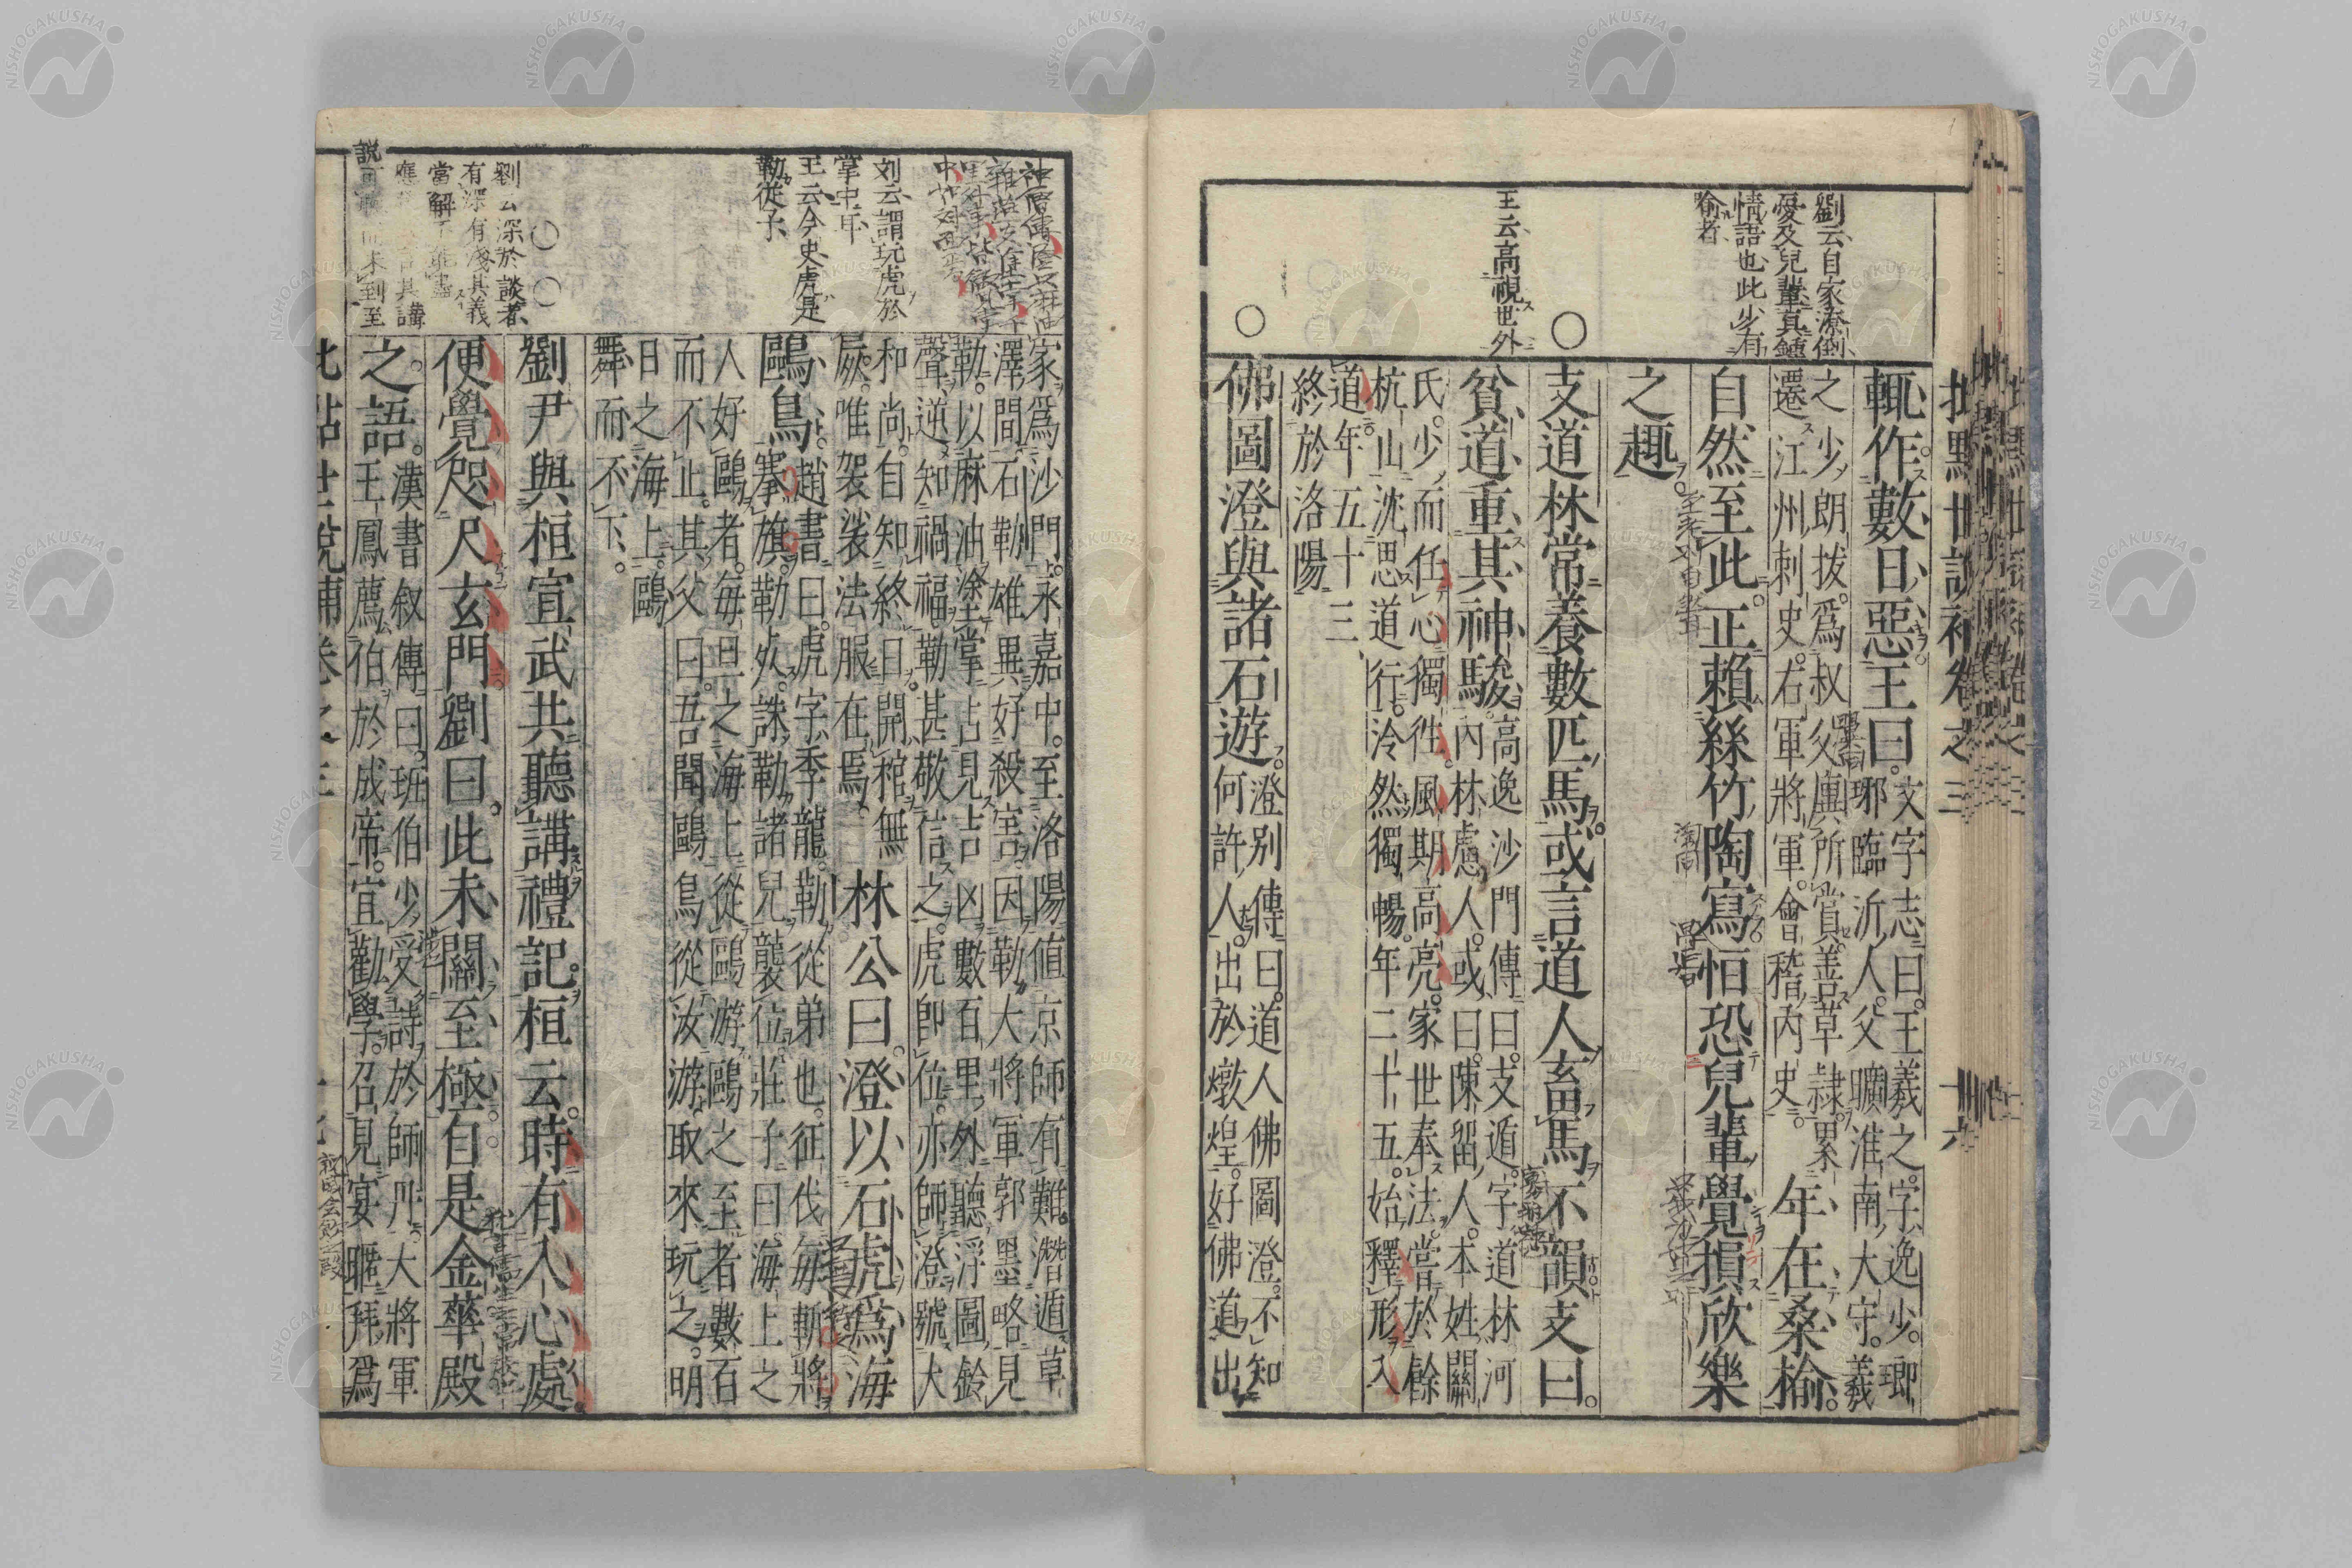 劉云自家潦倒
憂及兒輩真鍾
情語也此少有
喻者
王云高視世外
輒作數日惡王曰
文字志曰王羲之字逸少瑯
邪臨沂人父曠淮南大守羲
之少朗拔爲叔父廙所賞善草隷累
遷江州刺史右軍將軍會稽內史
年在桑榆
自然至此正賴絲竹陶寫恒恐兒輩覺損欣樂
之趣
支道林常養數匹馬或言道人畜馬不韻支曰
貧道重其神駿
高逸沙門傳曰支遁字道林河
內林慮人或曰陳留人本姓關
氏少而任心獨往風期高亮家世奉法嘗於餘
杭山沈思道行泠然獨暢年二十五始釋形入
道年五十三
終於洛陽
佛圖澄與諸石遊
澄別傳曰道人佛圖澄不知
何許人出於燉煌好佛道出
劉云謂玩虎於
掌中耳
王云今史虎是
勒從子
劉云深於談者
有深有淺其義
當解
家爲沙門永嘉中至洛陽値京師有難潛遁草
澤間石勒雄異好殺害因勒大將軍郭墨略見
勒以麻油塗掌占見吉凶數百里外聽浮圖鈴
聲逆知禍福勒甚敬信之虎即位亦師澄號大
和尚自知終日開棺無
屍唯袈裟法服在焉
林公曰澄以石虎爲海
鷗鳥
趙書曰虎字季龍勒從弟也征伐每斬將
搴旗勒死誅勒諸兒襲位莊子曰海上之
人好鷗者每旦之海上從鷗游鷗之至者數百
而不止其父曰吾聞鷗鳥從汝游取來玩之明
日之海上鷗
舞而不下
劉尹與桓宣武共聽講禮記桓云時有入心處
便覺咫尺玄門劉曰此未關至極自是金華殿
之語
漢書叙傳曰班伯少受詩於師丹大將軍
王鳳薦伯於成帝宜勸學召見宴暱拜爲